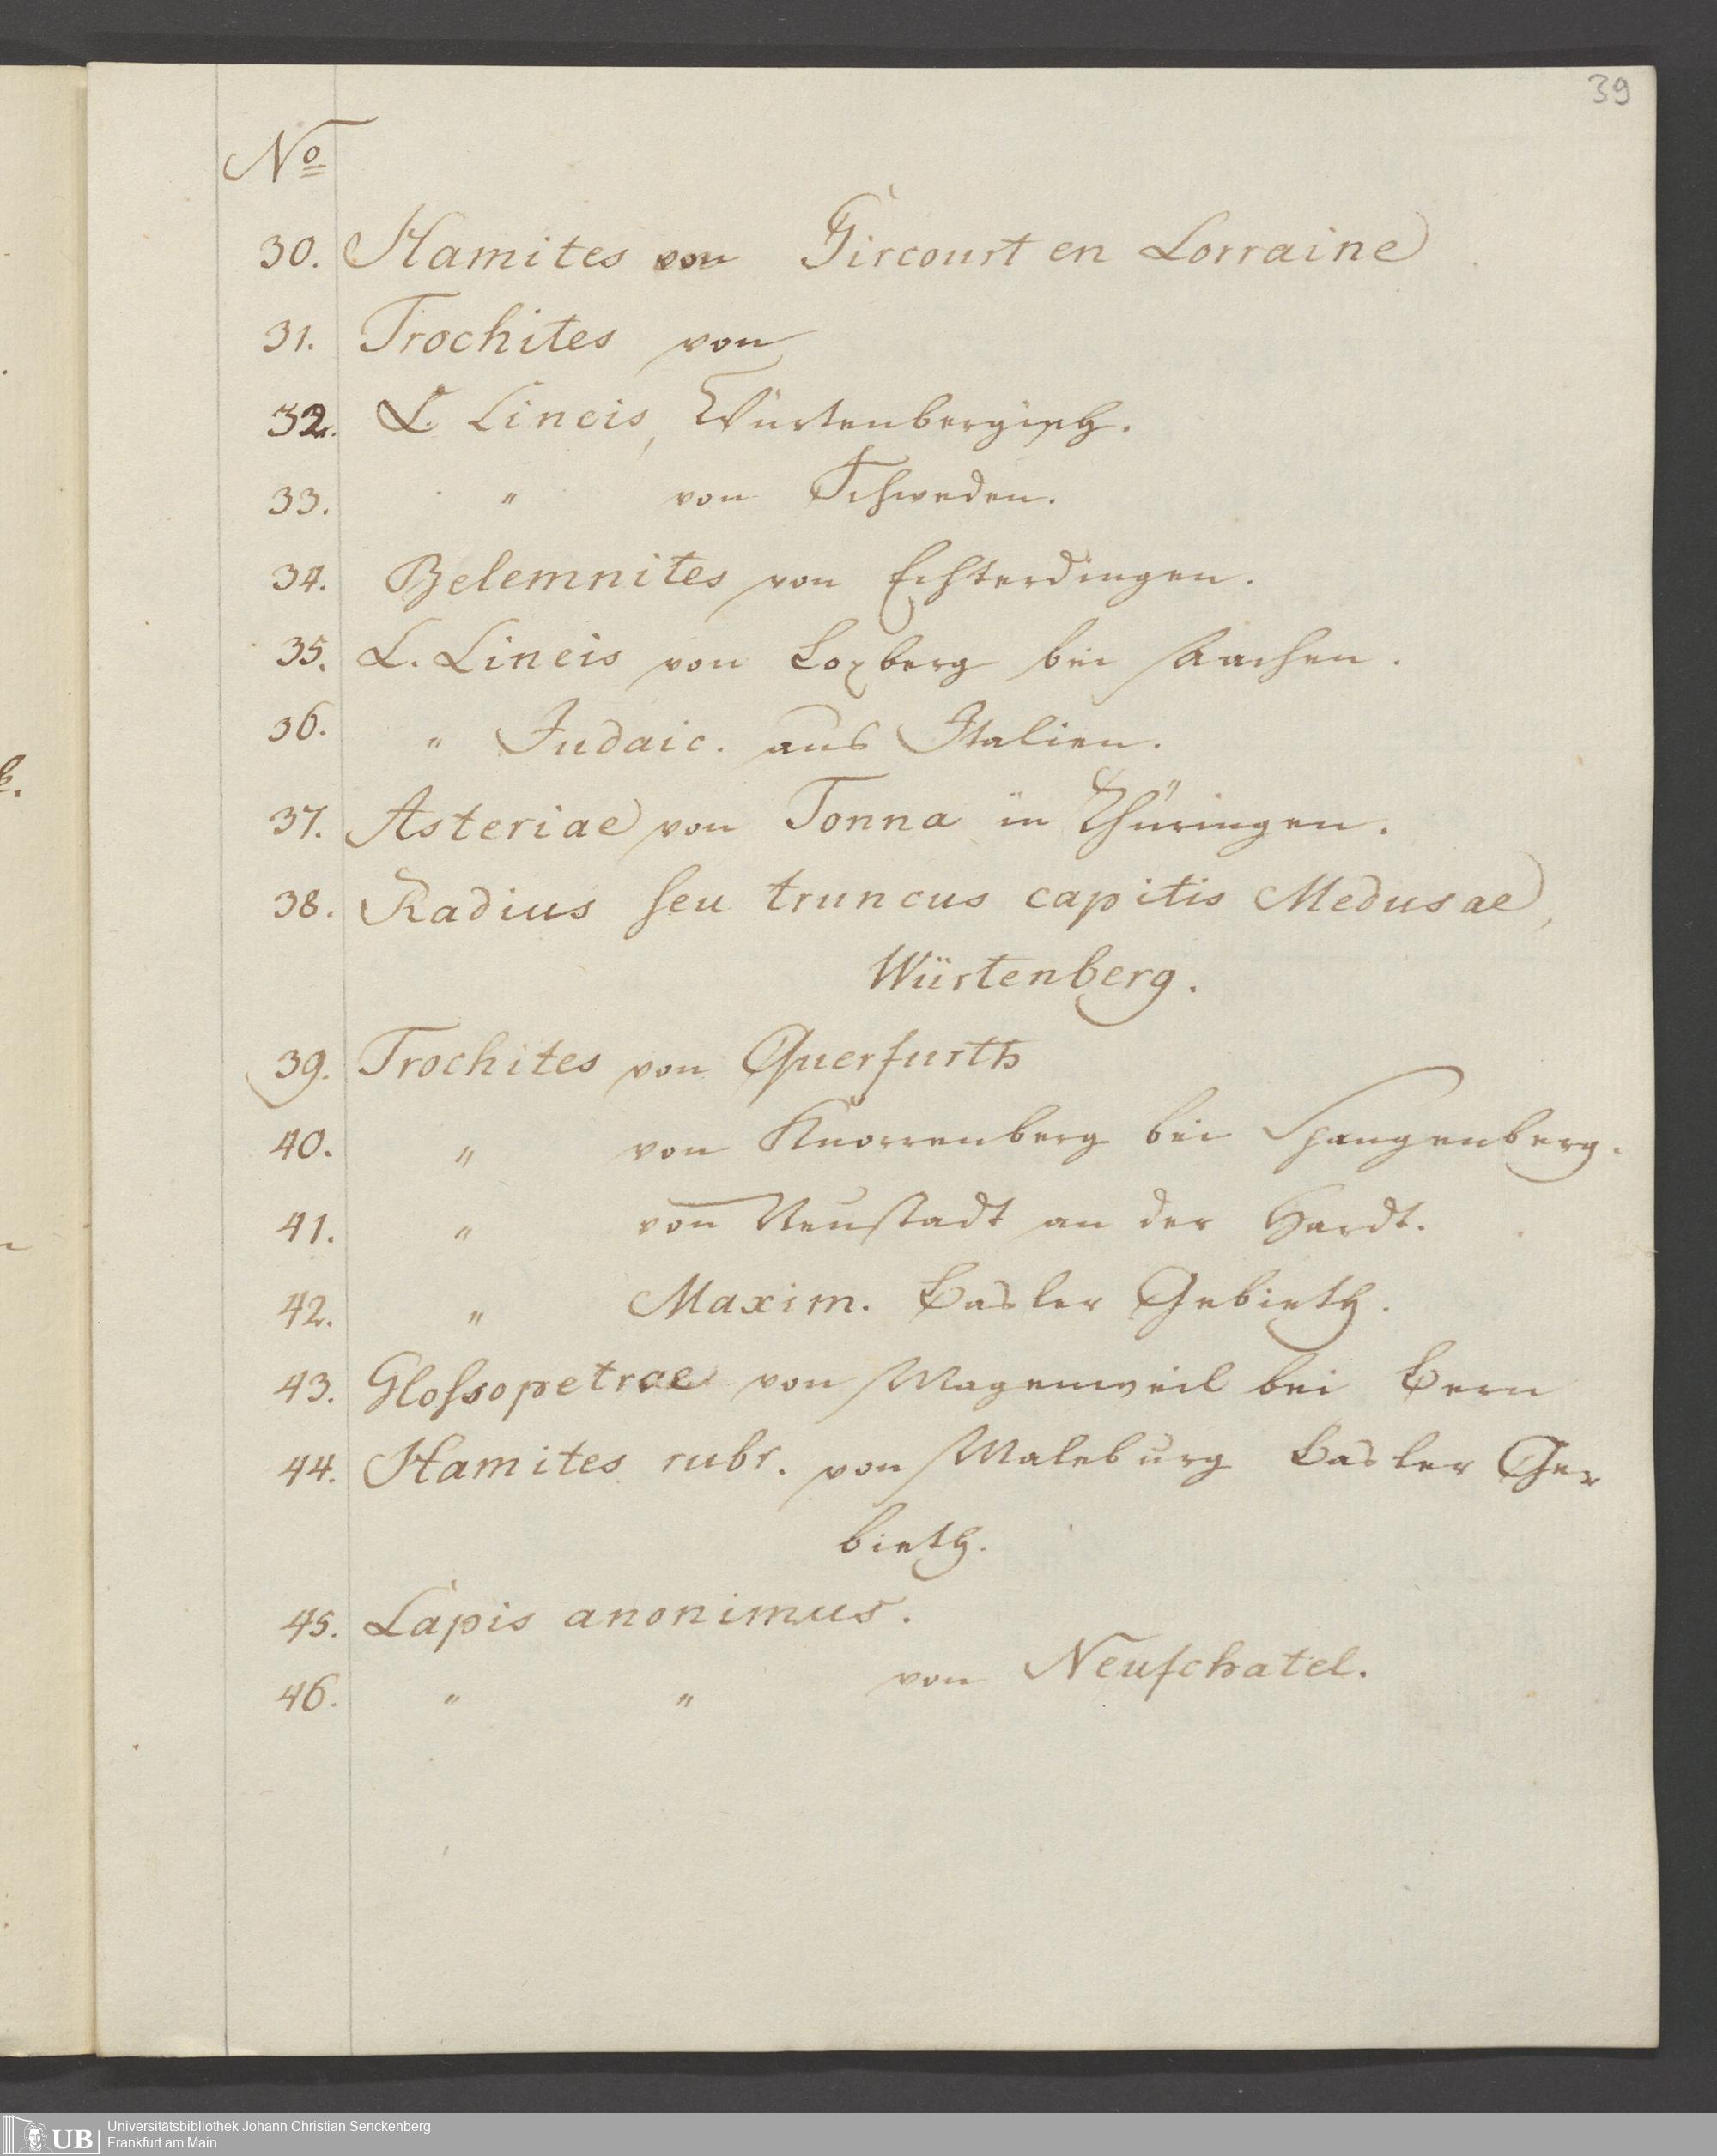 39
No
30. Hamites von Gircourt en Lorraine
31. Trochites von
32. L. Lincis, Würtenbergisch.
33. " von Schweden.
34. Belemnites von Echterdingen.
35. L. Lincis von Loxberg bei Aachen.
36. " Judaic. aus Italien.
37. Asteriae von Tonna in Thüringen.
38. Radius seu truncus capitis Medusae,
Würtenberg.
39. Trochites von Querfurth
40. " von Knorrenberg bei Spangenberg.
41. " von Neustadt an der Hardt.
42. " Maxim. Basler Gebieth.
43. Glossopetrae von Magenweil bei Bern
44. Hamites rubr. von Waleburg Basler Ge-
bieth.
45. Lapis anonimus.
46. " " von Neufchatel.
UB
Universitätsbibliothek Johann Christian Senckenberg
Frankfurt am Main